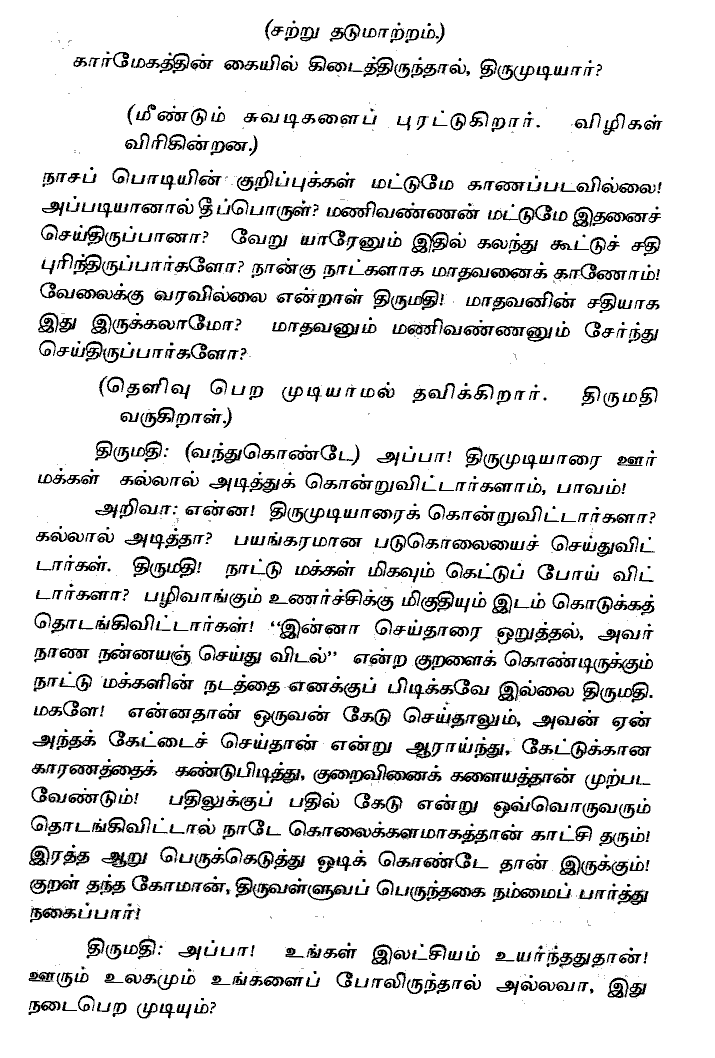 (சற்று தடுமாற்றம்.)
கார்மேகத்தின் கையில் கிடைத்திருந்தால், திருமுடியார்?
(மீண்டும் சுவடிகளைப் புரட்டுகிறார். விழிகள்
விரிகின்றன.)
நாசப் பொடியின் குறிப்புக்கள் மட்டுமே காணப்படவில்லை!
அப்படியானால் தீப்பொருள்? மணிவண்ணன் மட்டுமே இதனைச்
செய்திருப்பானா? வேறு யாரேனும் இதில் கலந்து கூட்டுச் சதி
புரிந்திருப்பார்களோ? நான்கு நாட்களாக மாதவனைக் காணோம்!
வேலைக்கு வரவில்லை என்றாள் திருமதி! மாதவனின் சதியாக
இது இருக்கலாமோ? மாதவனும் மணிவண்ணனும் சேர்ந்து
செய்திருப்பார்களோ?
(தெளிவு பெற முடியாமல் தவிக்கிறார். திருமதி
வருகிறாள்.)
திருமதி: (வந்துகொண்டே) அப்பா! திருமுடியாரை ஊர்
மக்கள் கல்லால் அடித்துக் கொன்றுவிட்டார்களாம், பாவம்!
அறிவா: என்ன! திருமுடியாரைக் கொன்றுவிட்டார்களா?
கல்லால் அடித்தா? பயங்கரமான படுகொலையைச் செய்துவிட்
டார்கள். திருமதி! நாட்டு மக்கள் மிகவும் கெட்டுப் போய் விட்
டார்களா? பழிவாங்கும் உணர்ச்சிக்கு மிகுதியும் இடம் கொடுக்கத்
தொடங்கிவிட்டார்கள்! “இன்னா செய்தாரை ஒறுத்தல், அவர்
நாண நன்னயஞ் செய்து விடல்” என்ற குறளைக் கொண்டிருக்கும்
நாட்டு மக்களின் நடத்தை எனக்குப் பிடிக்கவே இல்லை திருமதி.
மகளே! என்னதான் ஒருவன் கேடு செய்தாலும், அவன் ஏன்
அந்தக் கேட்டைச் செய்தான் என்று ஆராய்ந்து, கேட்டுக்கான
காரணத்தைக் கண்டுபிடித்து, குறைவினைக் களையத்தான் முற்பட
வேண்டும்! பதிலுக்குப் பதில் கேடு என்று ஒவ்வொருவரும்
தொடங்கிவிட்டால் நாடே கொலைக்களமாகத்தான் காட்சி தரும்!
இரத்த ஆறு பெருக்கெடுத்து ஒடிக் கொண்டே தான் இருக்கும்!
குறள் தந்த கோமான், திருவள்ளுவப் பெருந்தகை நம்மைப் பார்த்து
நகைப்பார்!
திருமதி: அப்பா! உங்கள் இலட்சியம் உயர்ந்ததுதான்!
ஊரும் உலகமும் உங்களைப் போலிருந்தால் அல்லவா, இது
நடைபெற முடியும்?